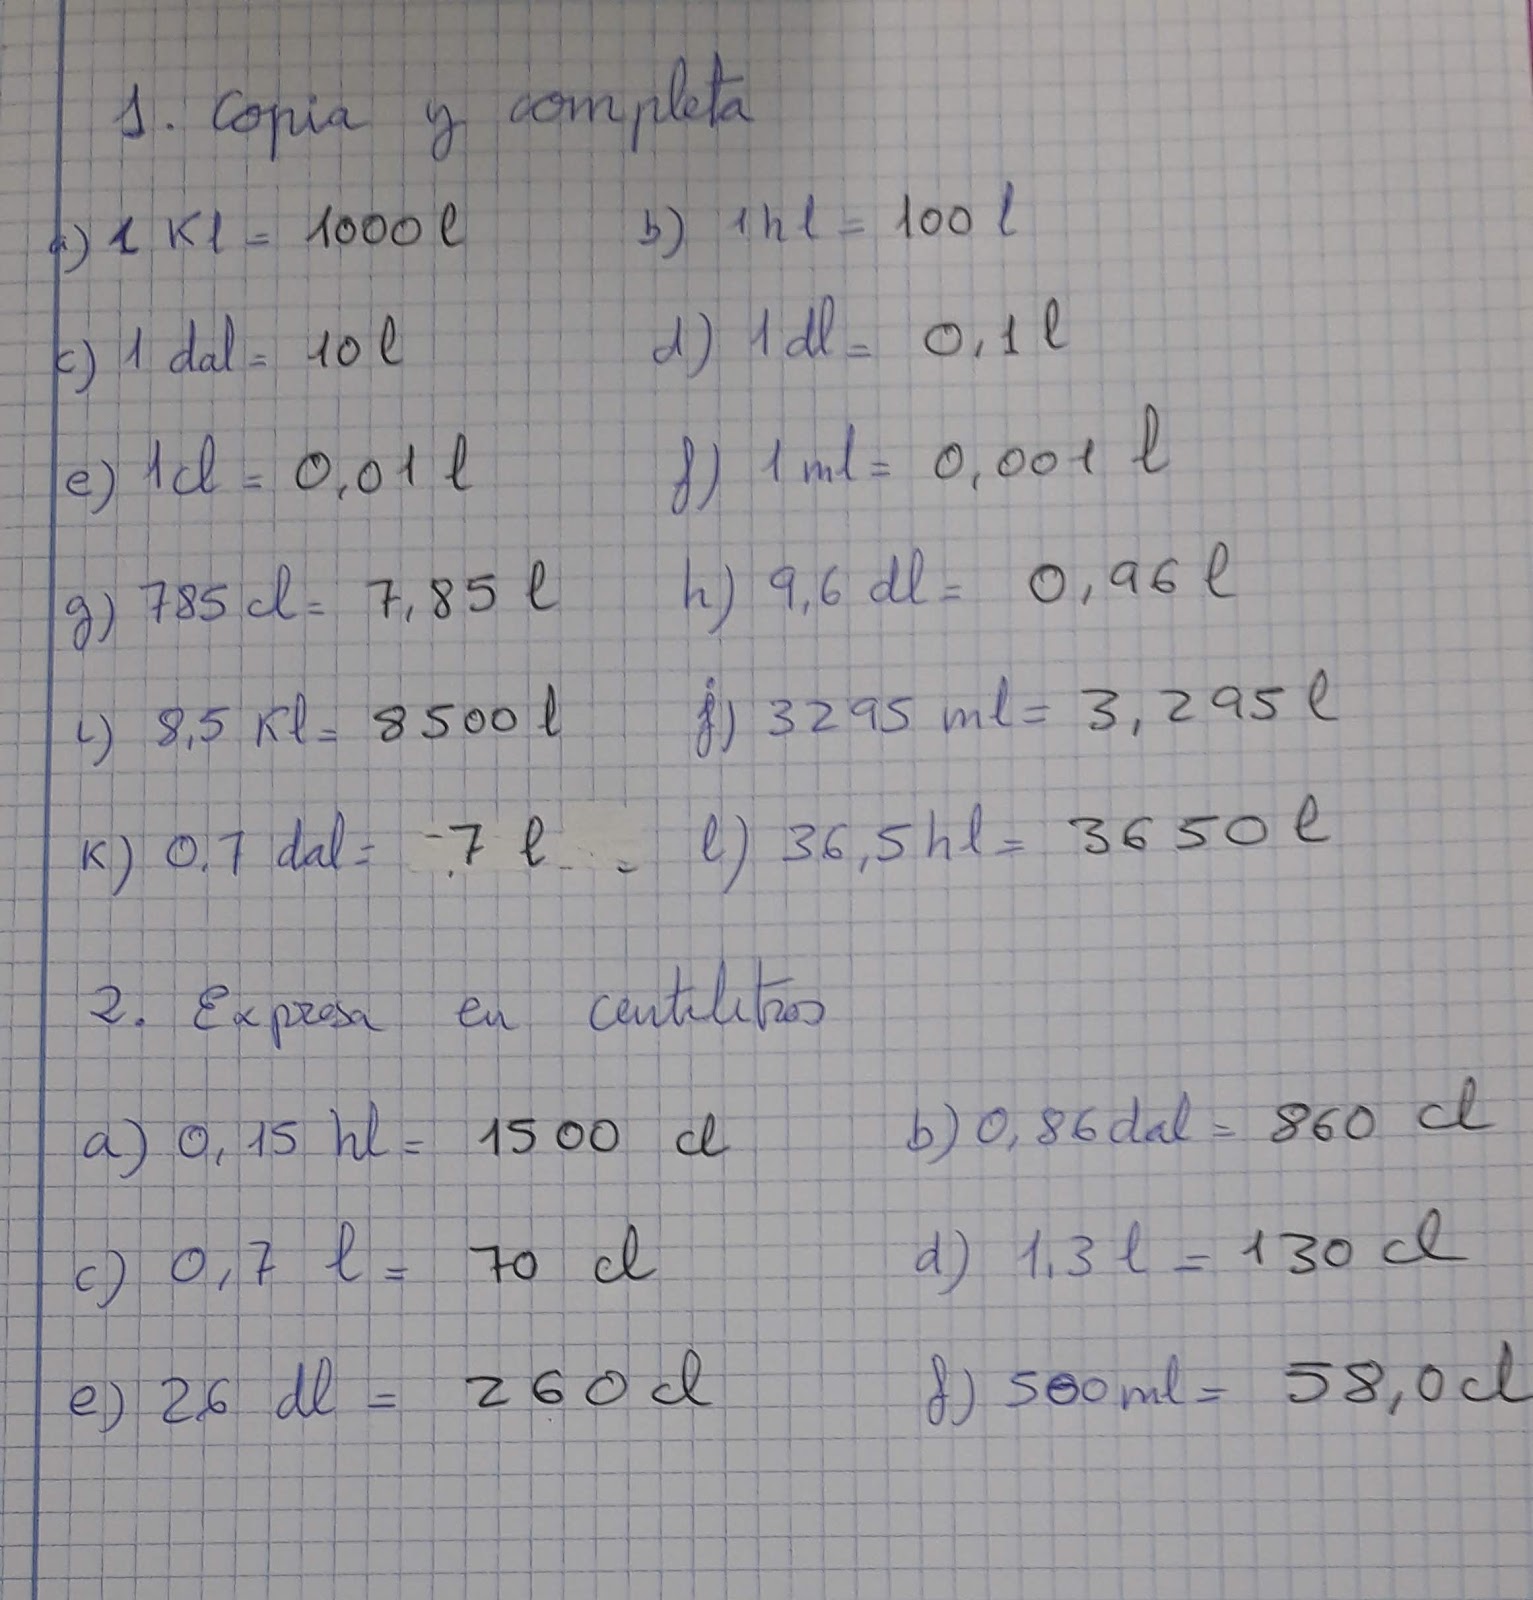 1. Copia y completa
a) 1 Kl = 1000 l b) 1 hl = 100 l
c) 1 dal = 10 l d) 1 dl = 0,1 l
e) 1 cl = 0,01 l f) 1 ml = 0,001 l
g) 785 cl = 7,85 l h) 9,6 dl = 0,96 l
i) 8,5 Kl = 8500 l j) 3295 ml = 3,295 l
K) 0,7 dal = 7 l l) 36,5 hl = 3650 l
2. Expresa en centilitros
a) 0,15 hl = 1500 cl b) 0,86 dal = 860 cl
c) 0,7 l = 70 cl d) 1,3 l = 130 cl
e) 26 dl = 260 cl f) ml = 58,0 cl